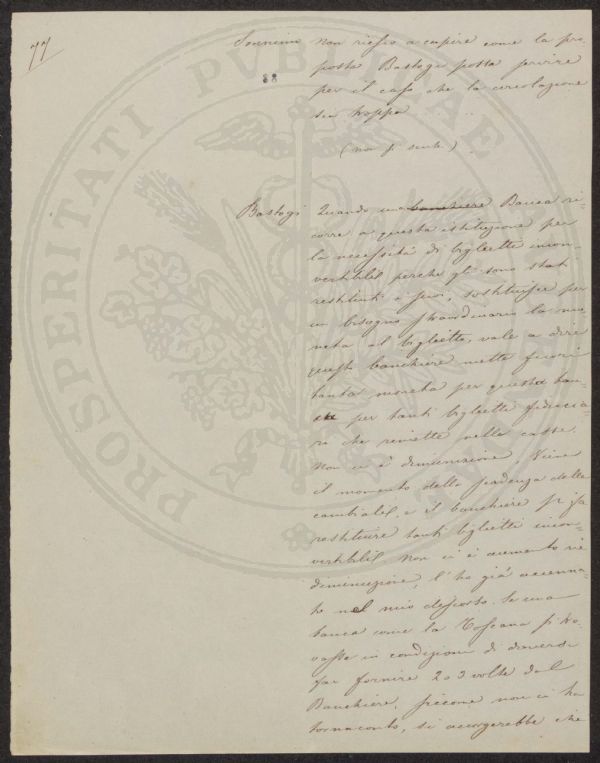 77
Sonnino non riesco a capire come la pro-
posta Bastogi possa servire
per il caso che la circolazione
sia troppa
88
(non si sente)
Bastogi Quando una banchiere Banca ri-
corre a questa istituzione per
la necessità di biglietti incon-
vertibili perché gli sono stati
restituiti i suoi, sostituisce per
un bisogno straordinario la mo-
neta al biglietto, vale a dire
questo banchiere mette fuori
tanta moneta per questa
per tanti biglietti fiducia-
ri che rimette nelle casse.
Non ci è diminuzione, Viene
il momento della scadenza delle
cambiali, e il banchiere si fa
restituire tanti biglietti incon-
vertibili non ci è aumento né
diminuzione, l'ho già accenna-
to nel mio discorso. Se una
banca come la Toscana si tro-
vasse in condizione di doversi
far fornire 2 o 3 volte dal
Banchiere, siccome non ci ha
tornaconto, si accorgerebbe che
PROSPERITATI PUBLICAE